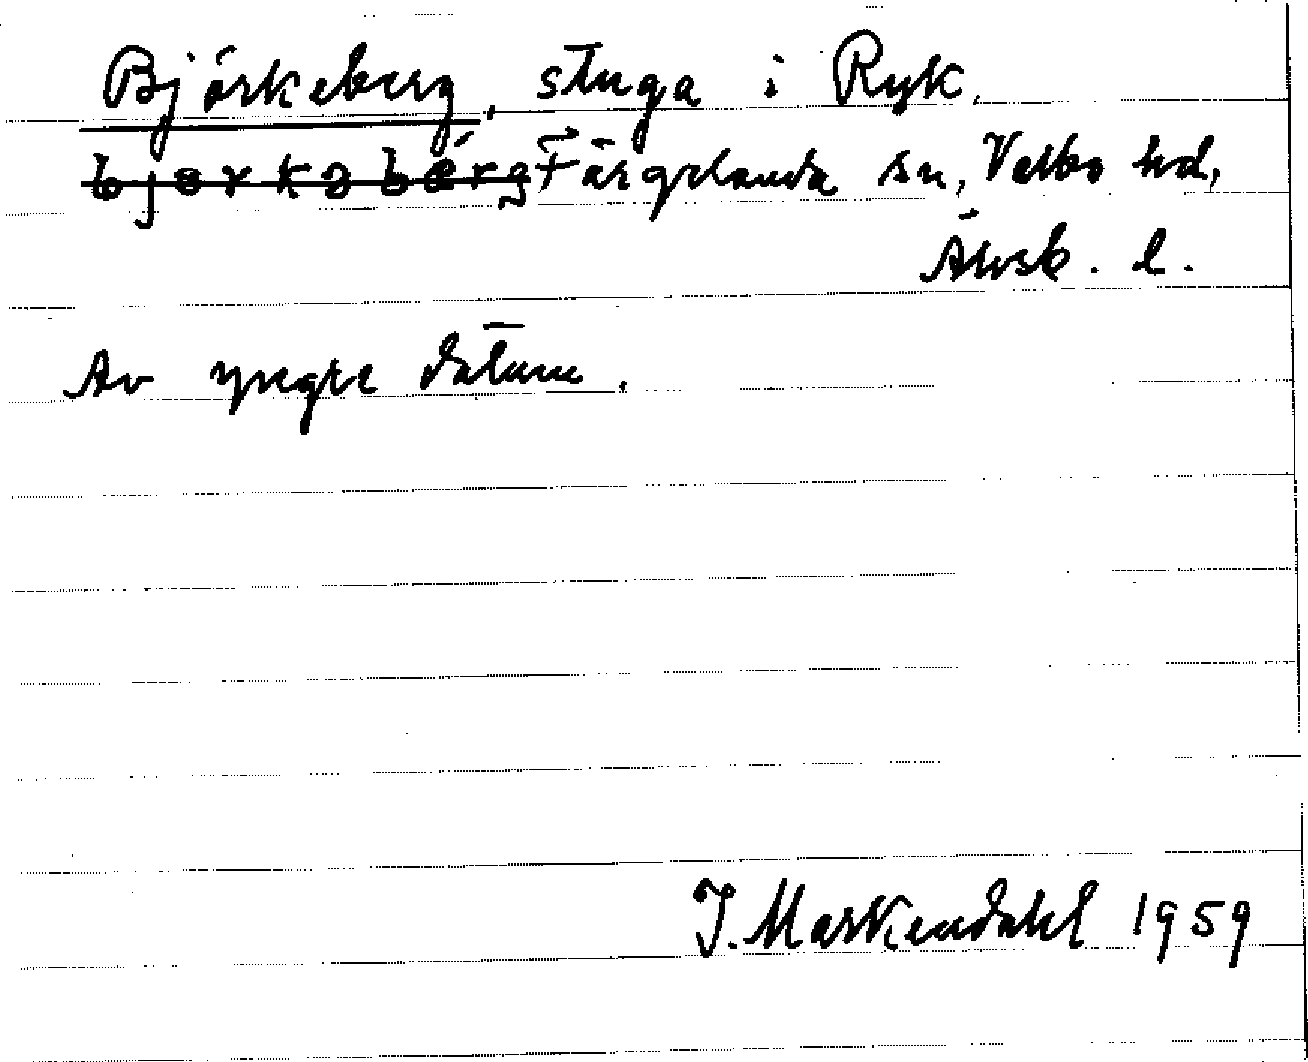 Björkeberg, stuga i Ryk,
bjɵrkəbérg Färgelanda sn, Valbo hd,
Älvsb. l.
Av yngre datum.
J. Markendahl 1959